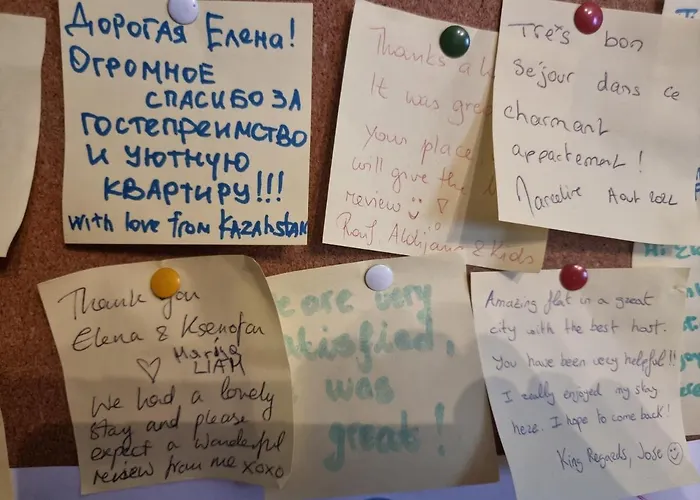 Дорогая Елена!
Огромное
спасибо за
гостепреимство
и уютную
квартиру!!!
with love from Kazahstan
Thanks a
It was gre
your place
will give the
review
& Kids
Très bon
séjour dans ce
charmant
appartement !
Août 2022
Thank you
Elena & Ksenofon
Marina
LIAM
We had a lovely
stay and please
expect a wonderful
review from me xoxo
e are very
tisfied,
was
great!
Amazing flat in a great
city with the best host.
You have been very helpful!!
I really enjoyed my stay
here. I hope to come back!
King Regards, Jose